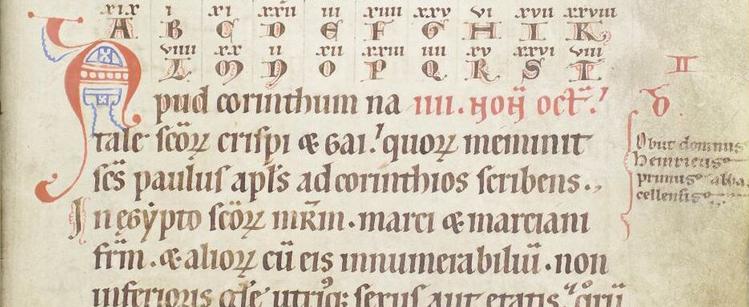 xix i xi xxii iii xiiii xxv vi xvii xxviii
A B C D E F G H I K
viiii xx ii xii xxiii iiii xv xxvi viii
L M N O P Q R S T
II
Apud corinthum na IIII. NON OCT.
D.
tale scōꝝ crispi & gai. quoꝝ meminit
scs paulus apls ad corinthios scribens.
In egypto scōꝝ mr̄m. marci & marciani
frm̄. & alioꝝ cū eis innumerabiliū. non
inferioris
Obiit domnus
Heinricus
primus abba
cellensis